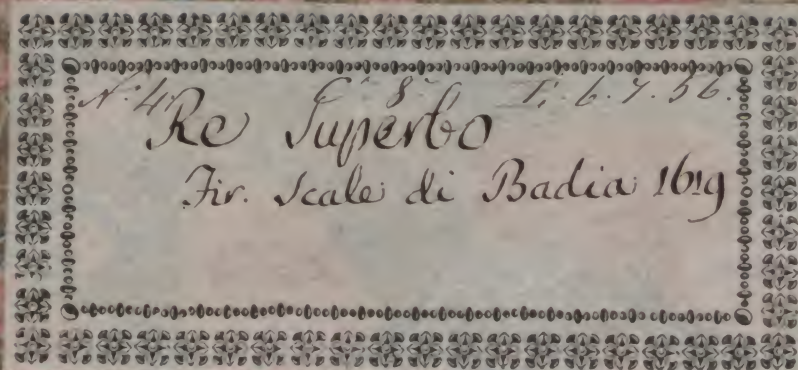 N. 4. C. 8. T. 6. 7. 56.
Re Superbo
Fir. Scale di Badia 1619